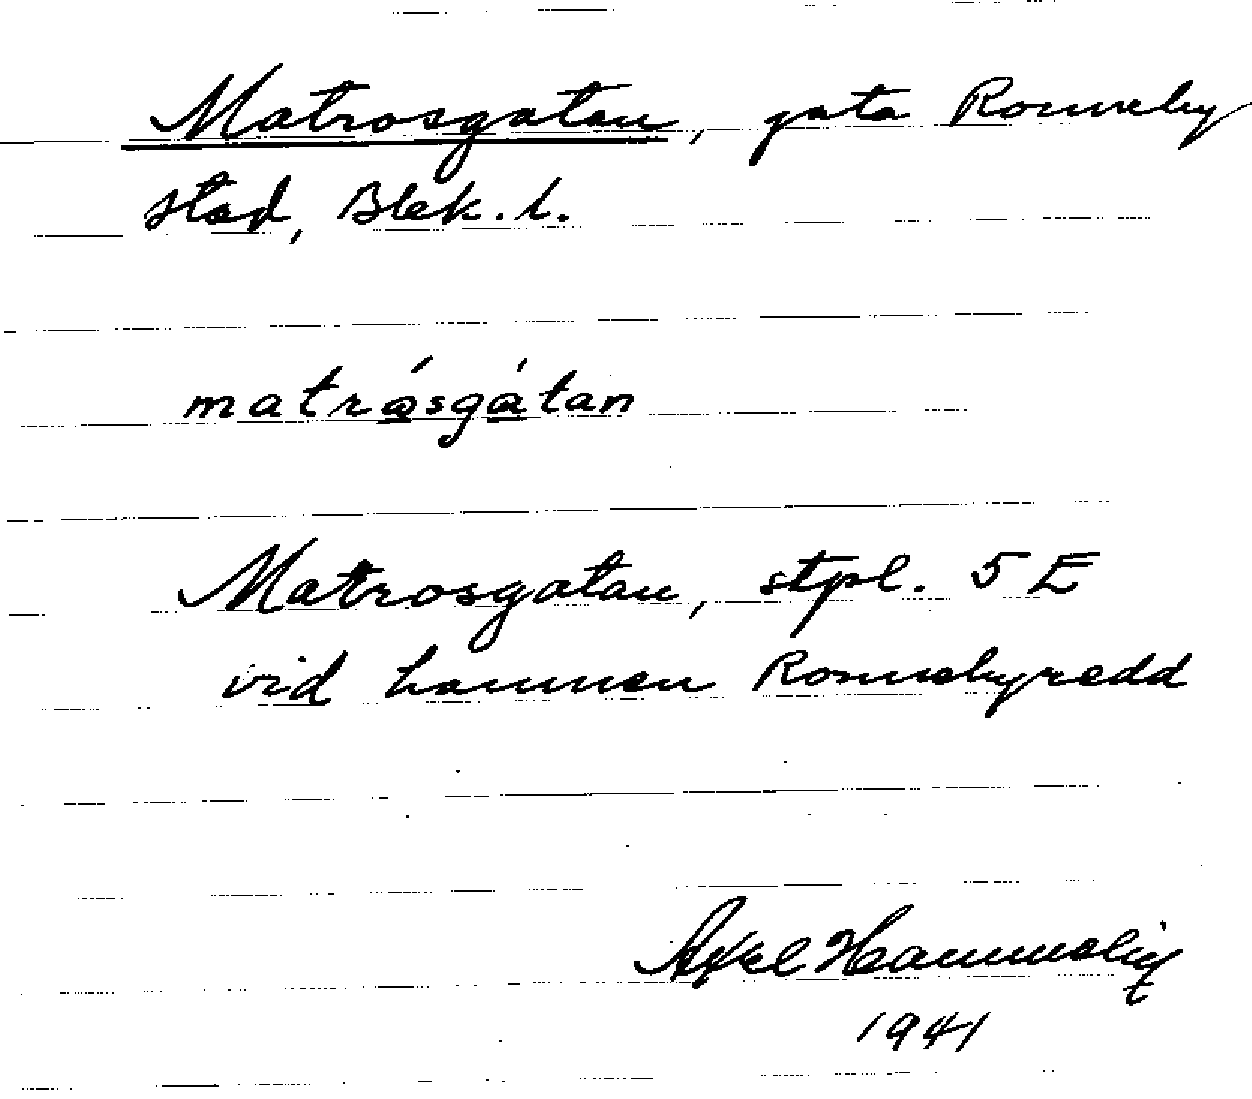 Matrosgatan, gata Ronneby
stad, Blek. l.
matråsgátan
Matrosgatan, stpl. 5 E
vid hamnen Ronnebyredd
Axel
1941